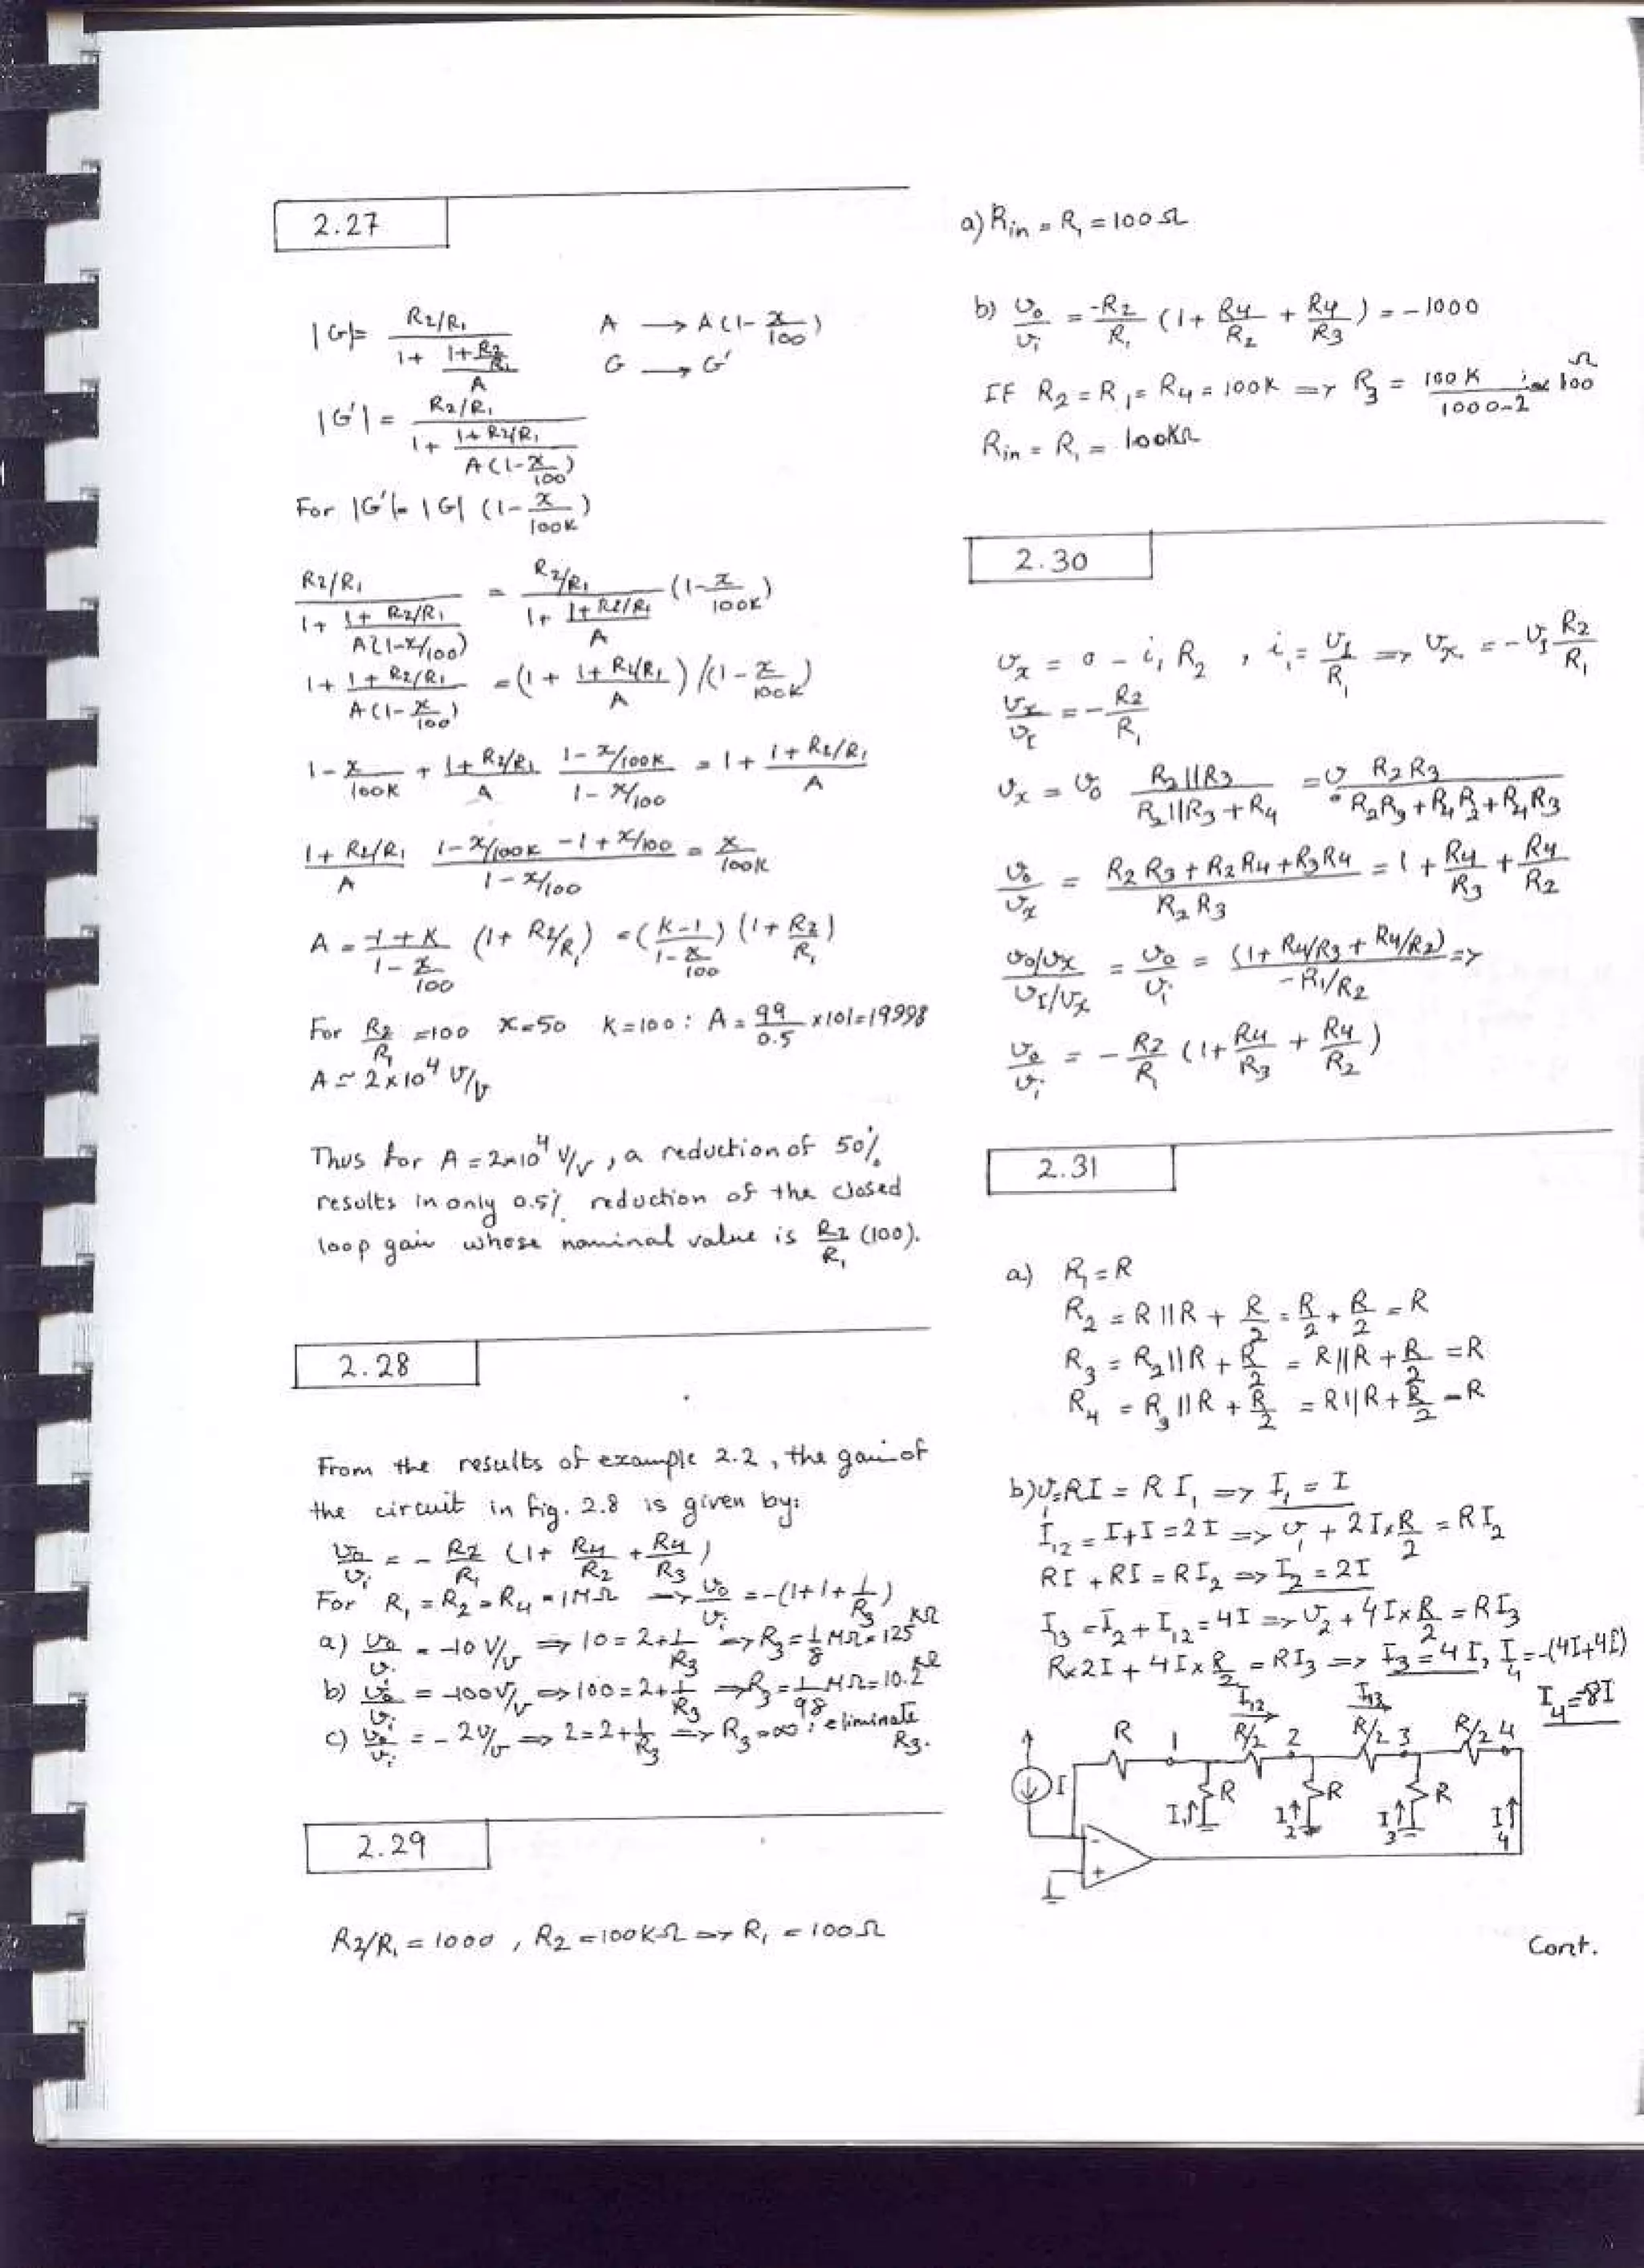 2.27
|G|= R2/R1 / (1+ (1+R2/R1)/A)   A → A(1- x/100)
G → G'
|G'| = R2/R1 / (1+ (1+R2/R1)/(A(1-x/100)))
For |G'|= |G| (1- x/100K)
R2/R1 / (1+ (1+R2/R1)/(A(1-x/100))) = R2/R1 / (1+ (1+R2/R1)/A) (1- x/100K)
1+ (1+R2/R1)/(A(1-x/100)) = (1+ (1+R2/R1)/A) /(1- x/100K)
1- x/100K + (1+R2/R1)/A (1-x/100K)/(1-x/100) = 1+ (1+R2/R1)/A
(1+R2/R1)/A (1-x/100K -1+x/100)/(1-x/100) = x/100K
A = (-1+K)/(1-x/100) (1+ R2/R1) = ((K-1)/(1-x/100)) (1+ R2/R1)
For R2/R1 =100 x=50 K=100: A = 99/0.5 x101=19998
A ≃ 2x10⁴ V/V
Thus for A = 2x10⁴ V/V, a reduction of 50%
results in only 0.5% reduction of the closed
loop gain whose nominal value is R2/R1 (100).
2.28
From the results of example 2.2, the gain of
the circuit in fig. 2.8 is given by:
υo/υi = - R2/R1 (1+ R4/R2 + R4/R3)
For R1 = R2 = R4 = 1MΩ ⇒ υo/υi = -(1+1+ 1/R3)
a) υo/υi = -10 V/V ⇒ 10 = 2+ 1/R3 ⇒ R3 = 1/8 MΩ = 125 KΩ
b) υo/υi = -100 V/V ⇒ 100 = 2+ 1/R3 ⇒ R3 = 1/98 MΩ = 10.2 KΩ
c) υo/υi = -2 V/V ⇒ 2 = 2+ 1/R3 ⇒ R3 = ∞ : eliminate R3.
2.29
R2/R1 = 1000 , R2 = 100KΩ ⇒ R1 = 100Ω
a) Rin = R1 = 100Ω
b) υo/υi = -R2/R1 (1+ R4/R2 + R4/R3) = -1000
If R2 = R1 = R4 = 100K ⇒ R3 = 100K/(1000-2) ≃ 100 Ω
Rin = R1 = 100KΩ
2.30
υx = 0 - i1 R2 , i1 = υI/R1 ⇒ υx = -υI R2/R1
υx/υI = - R2/R1
υx = υo (R2||R3)/(R2||R3+R4) = υo R2R3/(R2R3+R4R2+R4R3)
υo/υx = (R2R3+R2R4+R3R4)/(R2R3) = 1+ R4/R3 + R4/R2
(υo/υx)/(υI/υx) = υo/υi = (1+R4/R3+R4/R2)/(-R1/R2) ⇒
υo/υi = - R2/R1 (1+ R4/R3 + R4/R2)
2.31
a) R1 = R
R2 = R||R + R/2 = R/2 + R/2 = R
R3 = R2||R + R/2 = R||R + R/2 = R
R4 = R3||R + R/2 = R||R + R/2 = R
b) υ1=RI = R I1 ⇒ I1 = I
I12 = I+I = 2I ⇒ υ1 + 2I x R/2 = RI2
RI + RI = RI2 ⇒ I2 = 2I
I13 = I2 + I12 = 4I ⇒ υ2 + 4I x R/2 = RI3
Rx2I + 4I x R/2 = RI3 ⇒ I3 = 4I, I4 = -(4I+4I)
I4 = -8I
I12 I13
R 1 R/2 2 R/2 3 R/2 4
I R R R
I1 I2 I3 I4
- +
Cont.